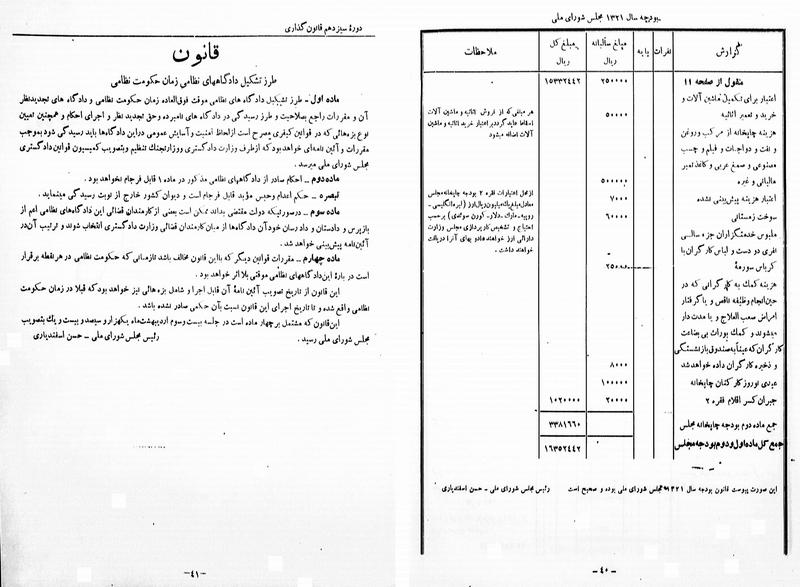 بودجه سال ۱۳۲۱ مجلس شورای ملی
گزارش
نفرات
پایه
مبلغ سالیانه
ریال
مبلغ کل
ریال
ملاحظات
منقول از صفحه ۱۱
۲۵۰۰۰۰
۱۵۳۳۲۴۴۲
اعتبار برای تکمیل ماشین آلات و
خرید و تعمیر اثاثیه
۵۰۰۰۰
هر مبلغی که از فروش اثاثیه و ماشین آلات
اسقاط عاید گردد بر اعتبار خرید اثاثیه و ماشین
آلات اضافه میشود
هزینه چاپخانه از مرکب و روغن
و نفت و دواجات و فیلم و چسب
مصنوعی و صمغ عربی و کاغذ تمبر
مالیاتی و غیره
۵۰۰۰۰۰
اعتبار هزینه پیش‌بینی نشده
۷۰۰۰
سوخت زمستانی
۶۰۰۰۰
از محل اعتبارات فقره ۲ بودجه چاپخانه مجلس
معادل مبلغ یک میلیون ریال ارز (لیره انگلیسی -
روپیه - مارک - دلار - کورن سوئدی) بر حسب
احتیاج و تشخیص کارپردازی مجلس وزارت
دارائی ارز خواهند داد و بهای آنرا دریافت
خواهند داشت .
ملبوس خدمتگزاران جزء سالی
نفری دو دست و لباس کارگران با
کرباس سورمه
۲۵۰۰۰
هزینه کمک به کارگرانی که در
حین انجام وظیفه ناقص و یا گرفتار
امراض صعب العلاج و یا مدت دار
میشوند و کمک بوراث بی بضاعت
کارگران که عیناً به صندوق بازنشستگی
و ذخیره کارگران داده خواهد شد
۸۰۰۰
عیدی نوروز کارکنان چاپخانه
۱۰۰۰۰۰
جبران کسر اقلام فقره ۲
۲۰۰۰۰
۱۰۲۰۰۰۰
جمع ماده دوم بودجه چاپخانه مجلس
۳۳۸۱۶۶۰
جمع کل ماده اول و دوم بودجه مجلس
۱۶۳۵۲۴۴۲
این صورت پیوست قانون بودجه سال ۱۳۲۱ مجلس شورای ملی بوده و صحیح است
رئیس مجلس شورای ملی - حسن اسفندیاری
-۴۰-
دورهٔ سیزدهم قانون گذاری
قانون
طرز تشکیل دادگاههای نظامی زمان حکومت نظامی
ماده اول - طرز تشکیل دادگاه های نظامی موقت فوق‌العاده زمان حکومت نظامی و دادگاه های تجدیدنظر
آن و مقررات راجع بصلاحیت و طرز رسیدگی در دادگاه های نامبرده وحق تجدید نظر و اجرای احکام و همچنین تعیین
نوع بزه‌هائی که در قوانین کیفری مصرح است از لحاظ امنیت و آسایش عمومی در این دادگاهها باید رسیدگی شود بموجب
مقررات و آئین نامه‌ای خواهد بود که ازطرف وزارت دادگستری و وزارت جنگ تنظیم و بتصویب کمیسیون قوانین دادگستری
مجلس شورای ملی میرسد .
ماده دوم - احکام صادر از دادگاههای نظامی مذکور در ماده ۱ قابل فرجام نخواهد بود .
تبصره - حکم اعدام وحبس مؤبد قابل فرجام است و دیوان کشور خارج از نوبت رسیدگی مینماید .
ماده سوم - در صورتیکه دولت مقتضی بداند ممکن است بعضی از کارمندان قضائی این دادگاه‌های نظامی اعم از
بازپرس و دادستان و دادرسان خود آن دادگاه‌ها از میان کارمندان قضائی وزارت دادگستری انتخاب شوند و ترتیب آن در
آئین‌نامه پیش‌بینی خواهد شد .
ماده چهارم - مقررات قوانین دیگر که با این قانون مخالف باشد تا زمانی که حکومت نظامی در هر نقطه برقرار
است در بارهٔ این دادگاههای نظامی موقتی بلا اثر خواهد بود .
این قانون از تاریخ تصویب آئین نامهٔ آن قابل اجرا و شامل بزه هائی نیز خواهد بود که قبلا در زمان حکومت
نظامی واقع شده و تا تاریخ اجرای این قانون نسبت بآن حکمی صادر نشده باشد .
این قانون که مشتمل بر چهار ماده است در جلسه بیست و سوم اردیبهشت ماه یکهزار و سیصد و بیست و یک بتصویب
مجلس شورای ملی رسید .
رئیس مجلس شورای ملی - حسن اسفندیاری
-۴۱-